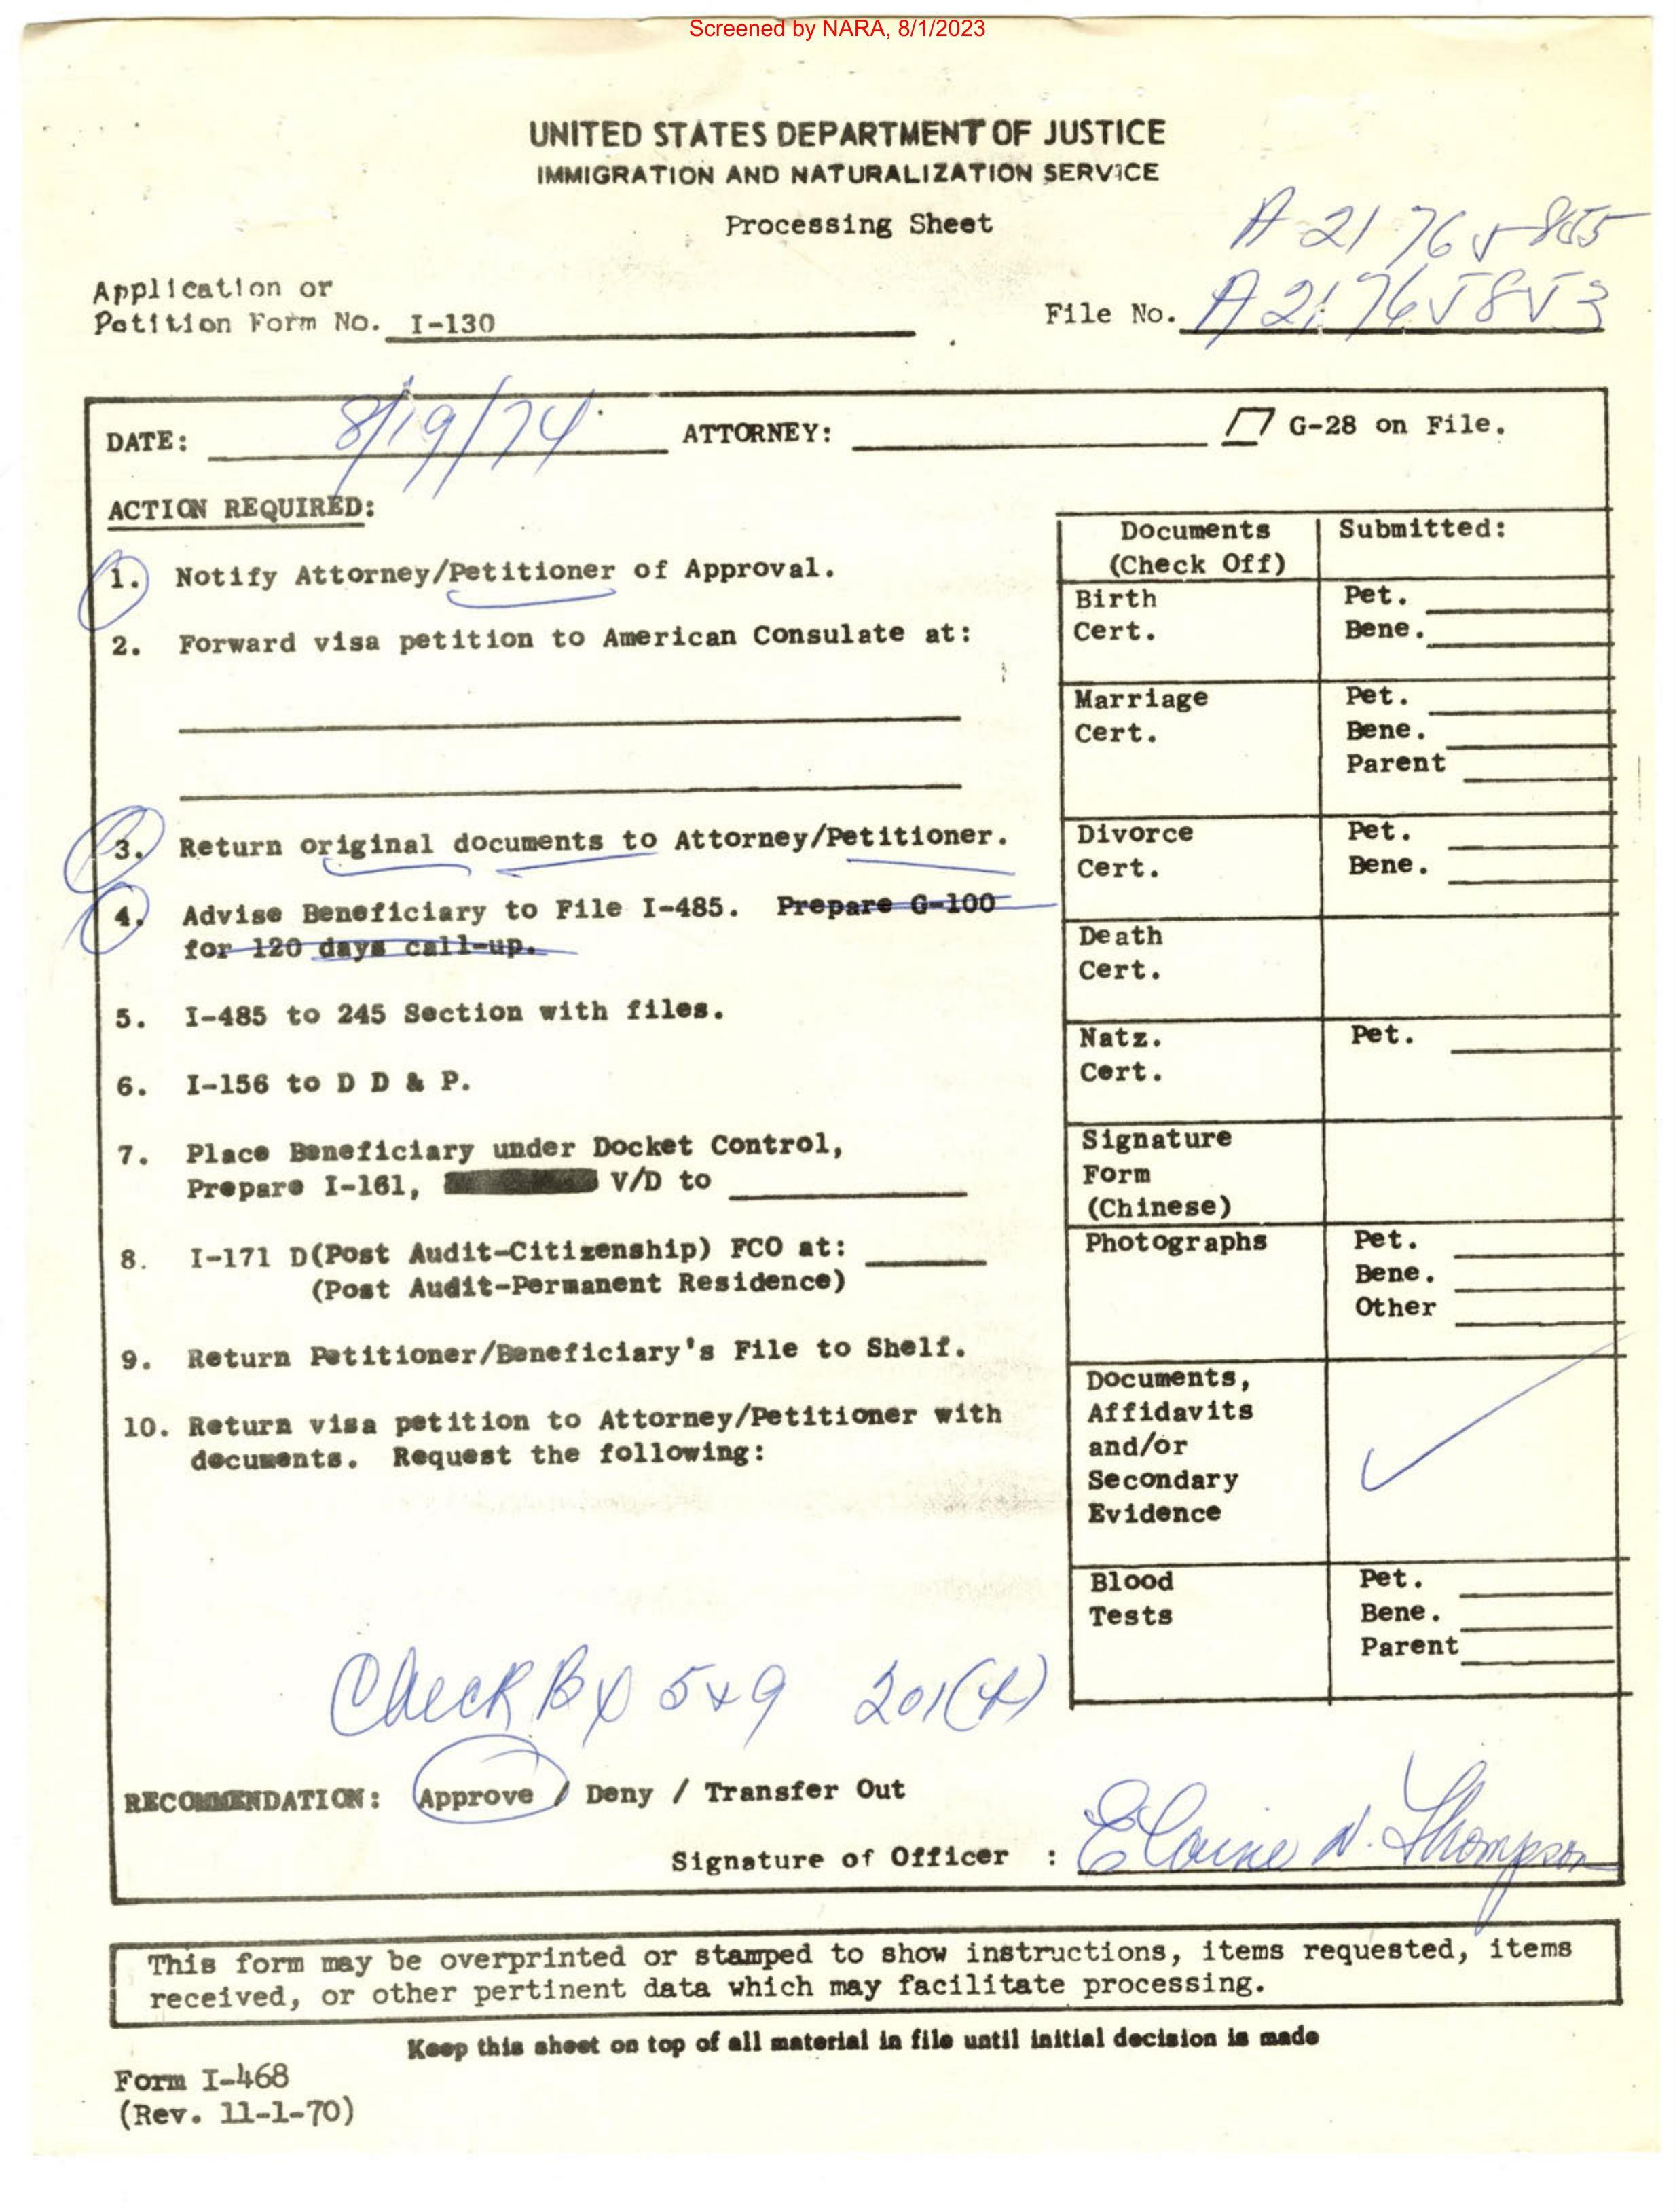 Screened by NARA, 8/1/2023
UNITED STATES DEPARTMENT OF JUSTICE
IMMIGRATION AND NATURALIZATION SERVICE
Processing Sheet
A 21 765 855
Application or
Petition Form No. I-130
File No. A 21 765853
DATE: 8/19/74 ATTORNEY: G-28 on File.
ACTION REQUIRED:
1. Notify Attorney/Petitioner of Approval.
2. Forward visa petition to American Consulate at:
3. Return original documents to Attorney/Petitioner.
4. Advise Beneficiary to File I-485. Prepare G-100
for 120 days call-up.
5. I-485 to 245 Section with files.
6. I-156 to D D & P.
7. Place Beneficiary under Docket Control,
Prepare I-161, V/D to
8. I-171 D(Post Audit-Citizenship) FCO at:
(Post Audit-Permanent Residence)
9. Return Petitioner/Beneficiary's File to Shelf.
10. Return visa petition to Attorney/Petitioner with
documents. Request the following:
Documents Submitted:
(Check Off)
Birth Pet.
Cert. Bene.
Marriage Pet.
Cert. Bene.
Parent
Divorce Pet.
Cert. Bene.
Death
Cert.
Natz. Pet.
Cert.
Signature
Form
(Chinese)
Photographs Pet.
Bene.
Other
Documents,
Affidavits
and/or
Secondary
Evidence
Blood Pet.
Tests Bene.
Parent
Check 5+9 201(f)
RECOMMENDATION: Approve / Deny / Transfer Out
Signature of Officer : Elaine N. Thompson
This form may be overprinted or stamped to show instructions, items requested, items
received, or other pertinent data which may facilitate processing.
Keep this sheet on top of all material in file until initial decision is made
Form I-468
(Rev. 11-1-70)